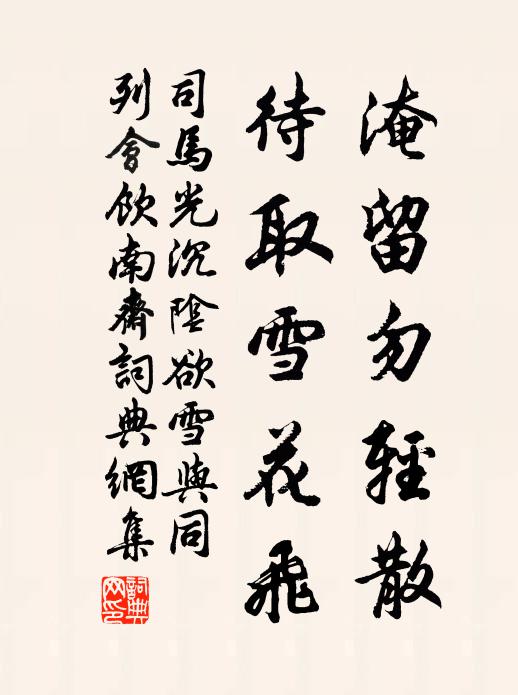 淹留勿輕散
待取雪花飛
司馬光沉陰欲雪與同
列會飲南齋詞典網集
詞典
网印